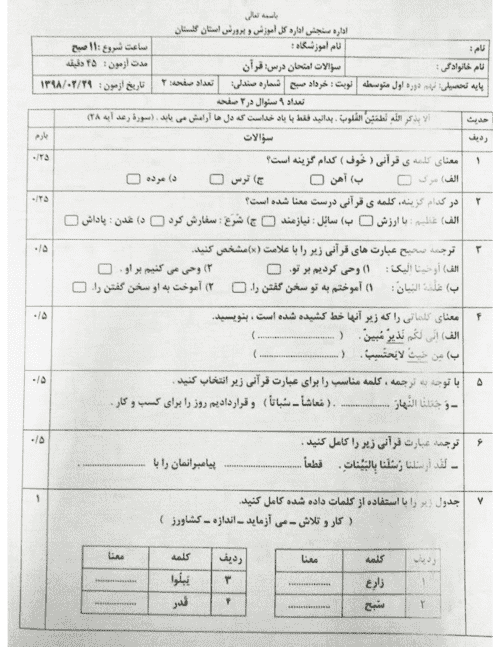 باسمه تعالی
اداره سنجش اداره کل آموزش و پرورش استان گلستان
نام : نام آموزشگاه : ساعت شروع : ۱۱ صبح
نام خانوادگی : سؤالات امتحان درس: قرآن مدت آزمون : ۲۵ دقیقه
پایه تحصیلی: نهم دوره اول متوسطه نوبت : خرداد صبح شماره صندلی: تعداد صفحه: ۲ تاریخ آزمون : ۱۳۹۸/۰۲/۲۹
تعداد ۹ سئوال در ۲ صفحه
حدیث الا بذکر الله تطمئن القلوب. بدانید فقط با یاد خداست که دل ها آرامش می یابد . (سوره رعد آیه ۲۸)
ردیف سؤالات بارم
۱ معنای کلمه ی قرآنی ( خوف ) کدام گزینه است؟ ۰/۲۵
الف) مرگ ب) آهن ج) ترس د) مرده
۲ در کدام گزینه، کلمه ی قرآنی درست معنا شده است؟ ۰/۲۵
الف) عظیم : با ارزش ب) سائِل : نیازمند ج) شَرَعَ : سفارش کرد د) عَدن : پاداش
۳ ترجمه صحیح عبارت های قرآنی زیر را با علامت (×)مشخص کنید. ۰/۵
الف) اوحینا الیک : ۱) وحی کردیم بر تو. ۲) وحی می کنیم بر او .
ب) عَلَّمَهُ البَیانَ : ۱) آموختم به تو سخن گفتن را. ۲) آموخت به او سخن گفتن را.
۴ معنای کلماتی را که زیر آنها خط کشیده شده است ، بنویسید. ۰/۵
الف) اِنّی لَکُم نَذیرٌ مُبینٌ . ( ........................ )
ب) مِن حَیثُ لایَحتَسِبُ . ( ........................ )
۵ با توجه به ترجمه ، کلمه مناسب را برای عبارت قرآنی زیر انتخاب کنید . ۰/۵
ـ وَ جَعَلنَا النَّهارَ .................. . ( مَعاشاً ـ سُباتاً ) و قراردادیم روز را برای کسب و کار .
۶ ترجمه عبارت قرآنی زیر را کامل کنید . ۰/۵
ـ لَقَد اَرسَلنا رُسُلَنا بِالبَیِّناتِ . قطعاً .................. پیامبرانمان را با .................. .
۷ جدول زیر را با استفاده از کلمات داده شده کامل کنید. ۱
( کار و تلاش ـ می آزماید ـ اندازه ـ کشاورز )
ردیف کلمه معنا ردیف کلمه معنا
۱ زارِع ............ ۳ یَبلُوا ............
۲ سَبح ............ ۴ قَدر ............